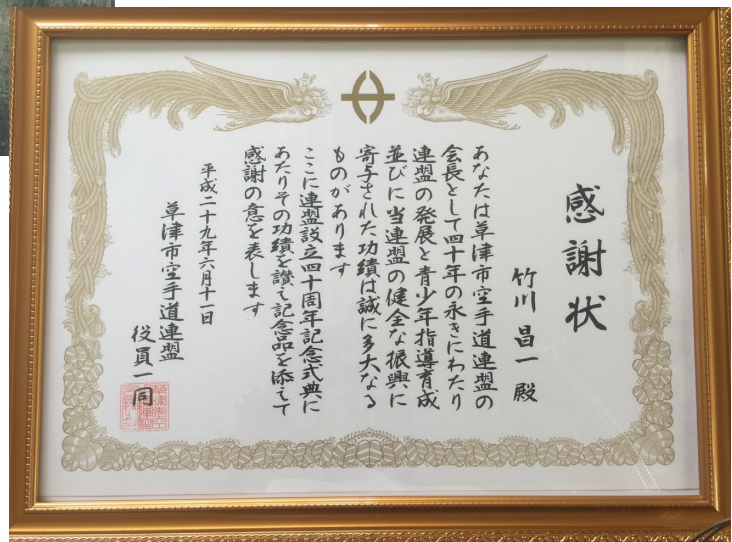 感謝状
竹川昌一殿
あなたは草津市空手道連盟の
会長として四十年の永きにわたり
連盟の発展と青少年指導育成
並びに当連盟の健全な振興に
寄与された功績は誠に多大なる
ものがあります
ここに連盟設立四十周年記念式典に
あたりその功績を讃え記念品を添えて
感謝の意を表します
平成二十九年六月十一日
草津市空手道連盟
役員一同